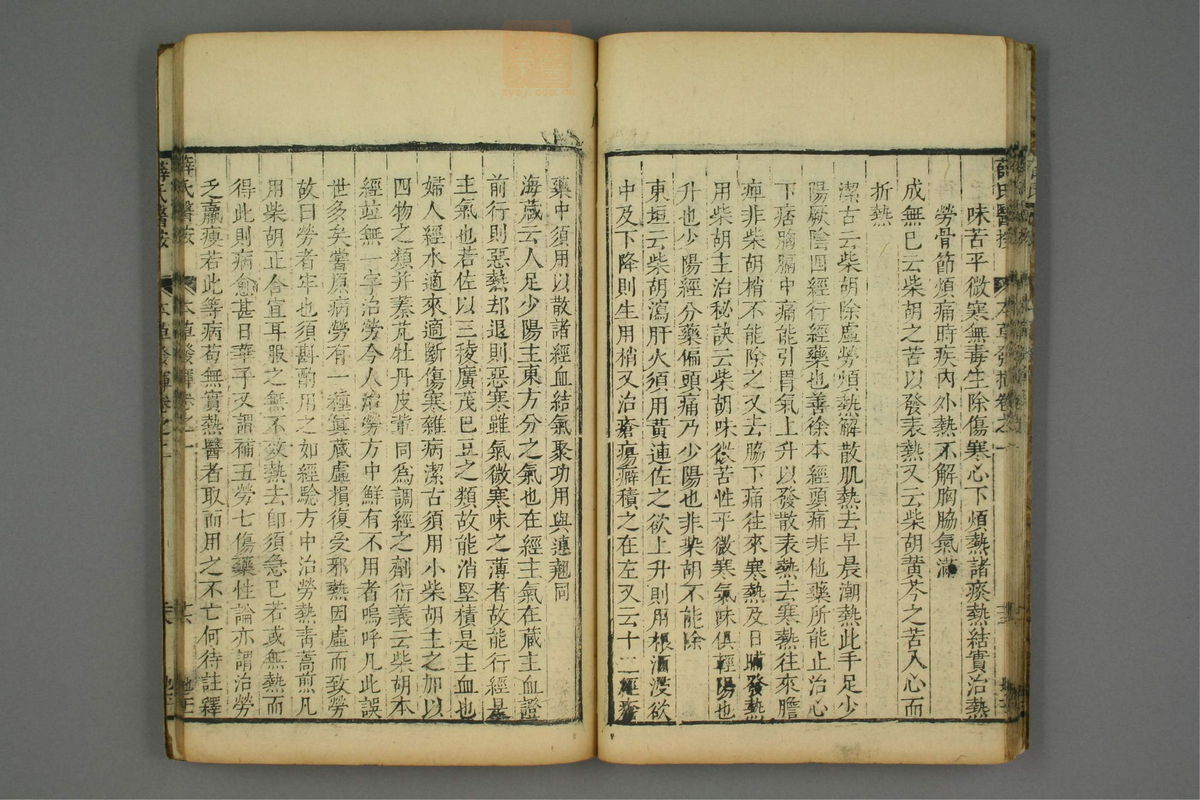 味苦平微寒無毒主除傷寒心下煩熱諸痰熱結實治熱
勞骨節煩痛時疾內外熱不解胸脇氣滿
成無巳云柴胡之苦以發表熱又云柴胡黃芩之苦入心而
折熱
潔古云柴胡除虛勞煩熱解散肌熱去早晨潮熱此手足少
陽厥陰四經行經藥也善徐本經頭痛非他藥所能止治心
下痞胸膈中痛能引胃氣上升以發散表熱去寒熱往來膽
痺非柴胡梢不能除之又去脇下痛往來寒熱及日晡發熱
用柴胡主治秘訣云柴胡味微苦性平微寒氣味俱輕陽也
升也少陽經分藥偏頭痛乃少陽也非柴胡不能除
東垣云柴胡瀉肝火須用黃連佐之欲上升則用根酒浸欲
中及下降則生用梢又治瘡瘍癖積之在左又云十二經瘡
藥中須用以散諸經血結氣聚功用與連翹同
海藏云入足少陽主東方分之氣也在經主氣在藏主血證
前行則惡熱却退則惡寒雖氣微寒味之薄者故能行經是
主氣也若佐以三稜廣茂巴豆之類故能消堅積是主血也
婦人經水適來適斷傷寒雜病潔古須用小柴胡主之加以
四物之類并秦芃牡丹皮輩同為調經之劑衍義云柴胡本
經並無一字治勞今人治勞方中鮮有不用者嗚呼凡此誤
世多矣嘗原病勞有一種真藏虛損復受邪熱因虛而致勞
故曰勞者牢也須斟酌用之如經驗方中治勞熱青蒿煎凡
用柴胡正合宜耳服之無不效熱去卽須急巳若或無熱而
得此則病愈甚日華子又謂補五勞七傷藥性論亦謂治勞
乏羸瘦若此等病苟無實熱醫者取而用之不亡何待註釋
薛氏醫按
本草發揮卷之一